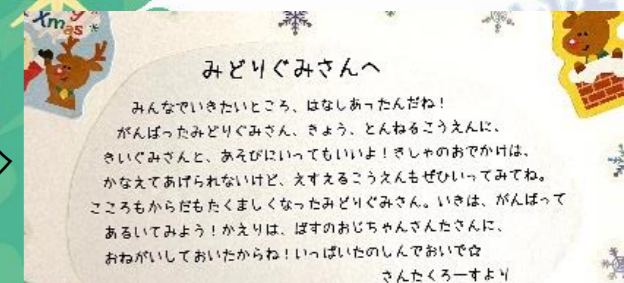 Xmas
みどりぐみさんへ
みんなでいきたいところ、はなしあったんだね！
がんばったみどりぐみさん、きょう、とんねるこうえんに、
きいぐみさんと、あそびにいってもいいよ！きしゃのおでかけは、
かなえてあげられないけど、えすえるこうえんもぜひいってみてね。
こころもからだもたくましくなったみどりぐみさん。いきは、がんばって
あるいてみよう！かえりは、ばすのおじちゃんさんたさんに、
おねがいしておいたからね！いっぱいたのしんでおいで☆
さんたくろーすより